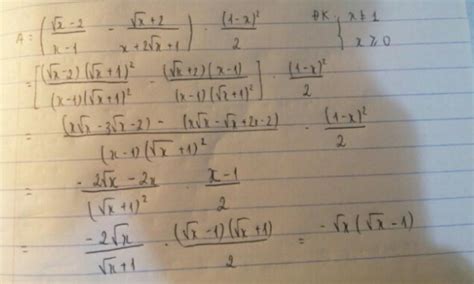 A = ( (√x - 2)/(x - 1) - (√x + 2)/(x + 2√x + 1) ) · (1-x)²/2    ĐK: { x ≠ 1
x ≥ 0
= [ (√x-2)(√x+1)²/((x-1)(√x+1)²) - (√x+2)(x-1)/((x-1)(√x+1)²) ] · (1-x)²/2
= ((x√x - 3√x - 2) - (x√x - √x + 2x - 2))/((x-1)(√x+1)²) · (1-x)²/2
= (-2√x - 2x)/(√x+1)² · (x-1)/2
= -2√x/(√x+1) · (√x-1)(√x+1)/2 = -√x(√x-1)